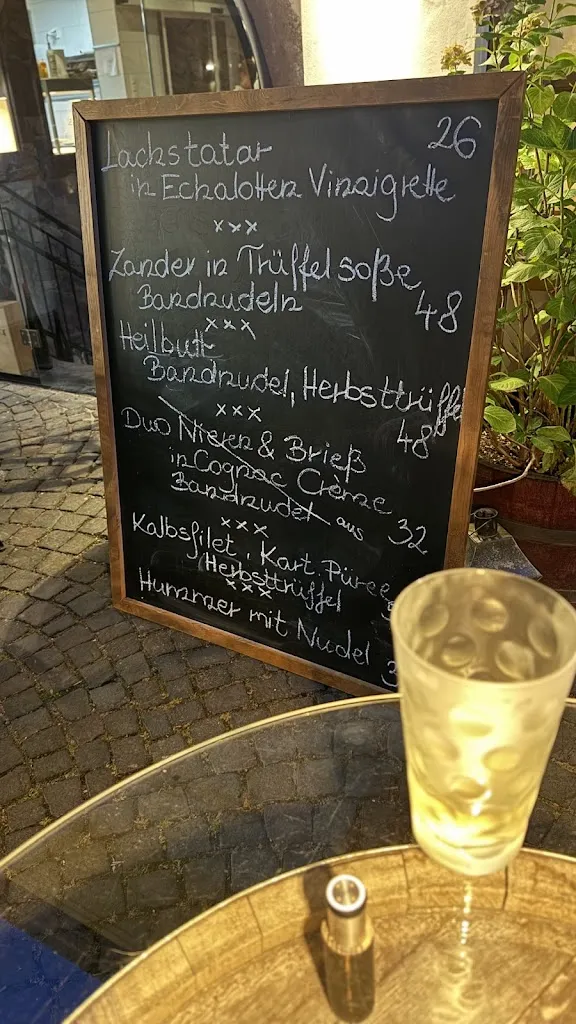 Lachstatar 26
in Echalotten Vinaigrette
xxx
Zander in Trüffelsoße,
Bandnudeln 48
xxx
Heilbutt
Bandnudel, Herbsttrüffel
xxx 48
Duo Nieren & Brieß
in Cognac Creme
Bandnudel aus 32
xxx
Kalbsfilet, Kart. Püree
(Herbsttrüffel
xxx
Hummer mit Nudel